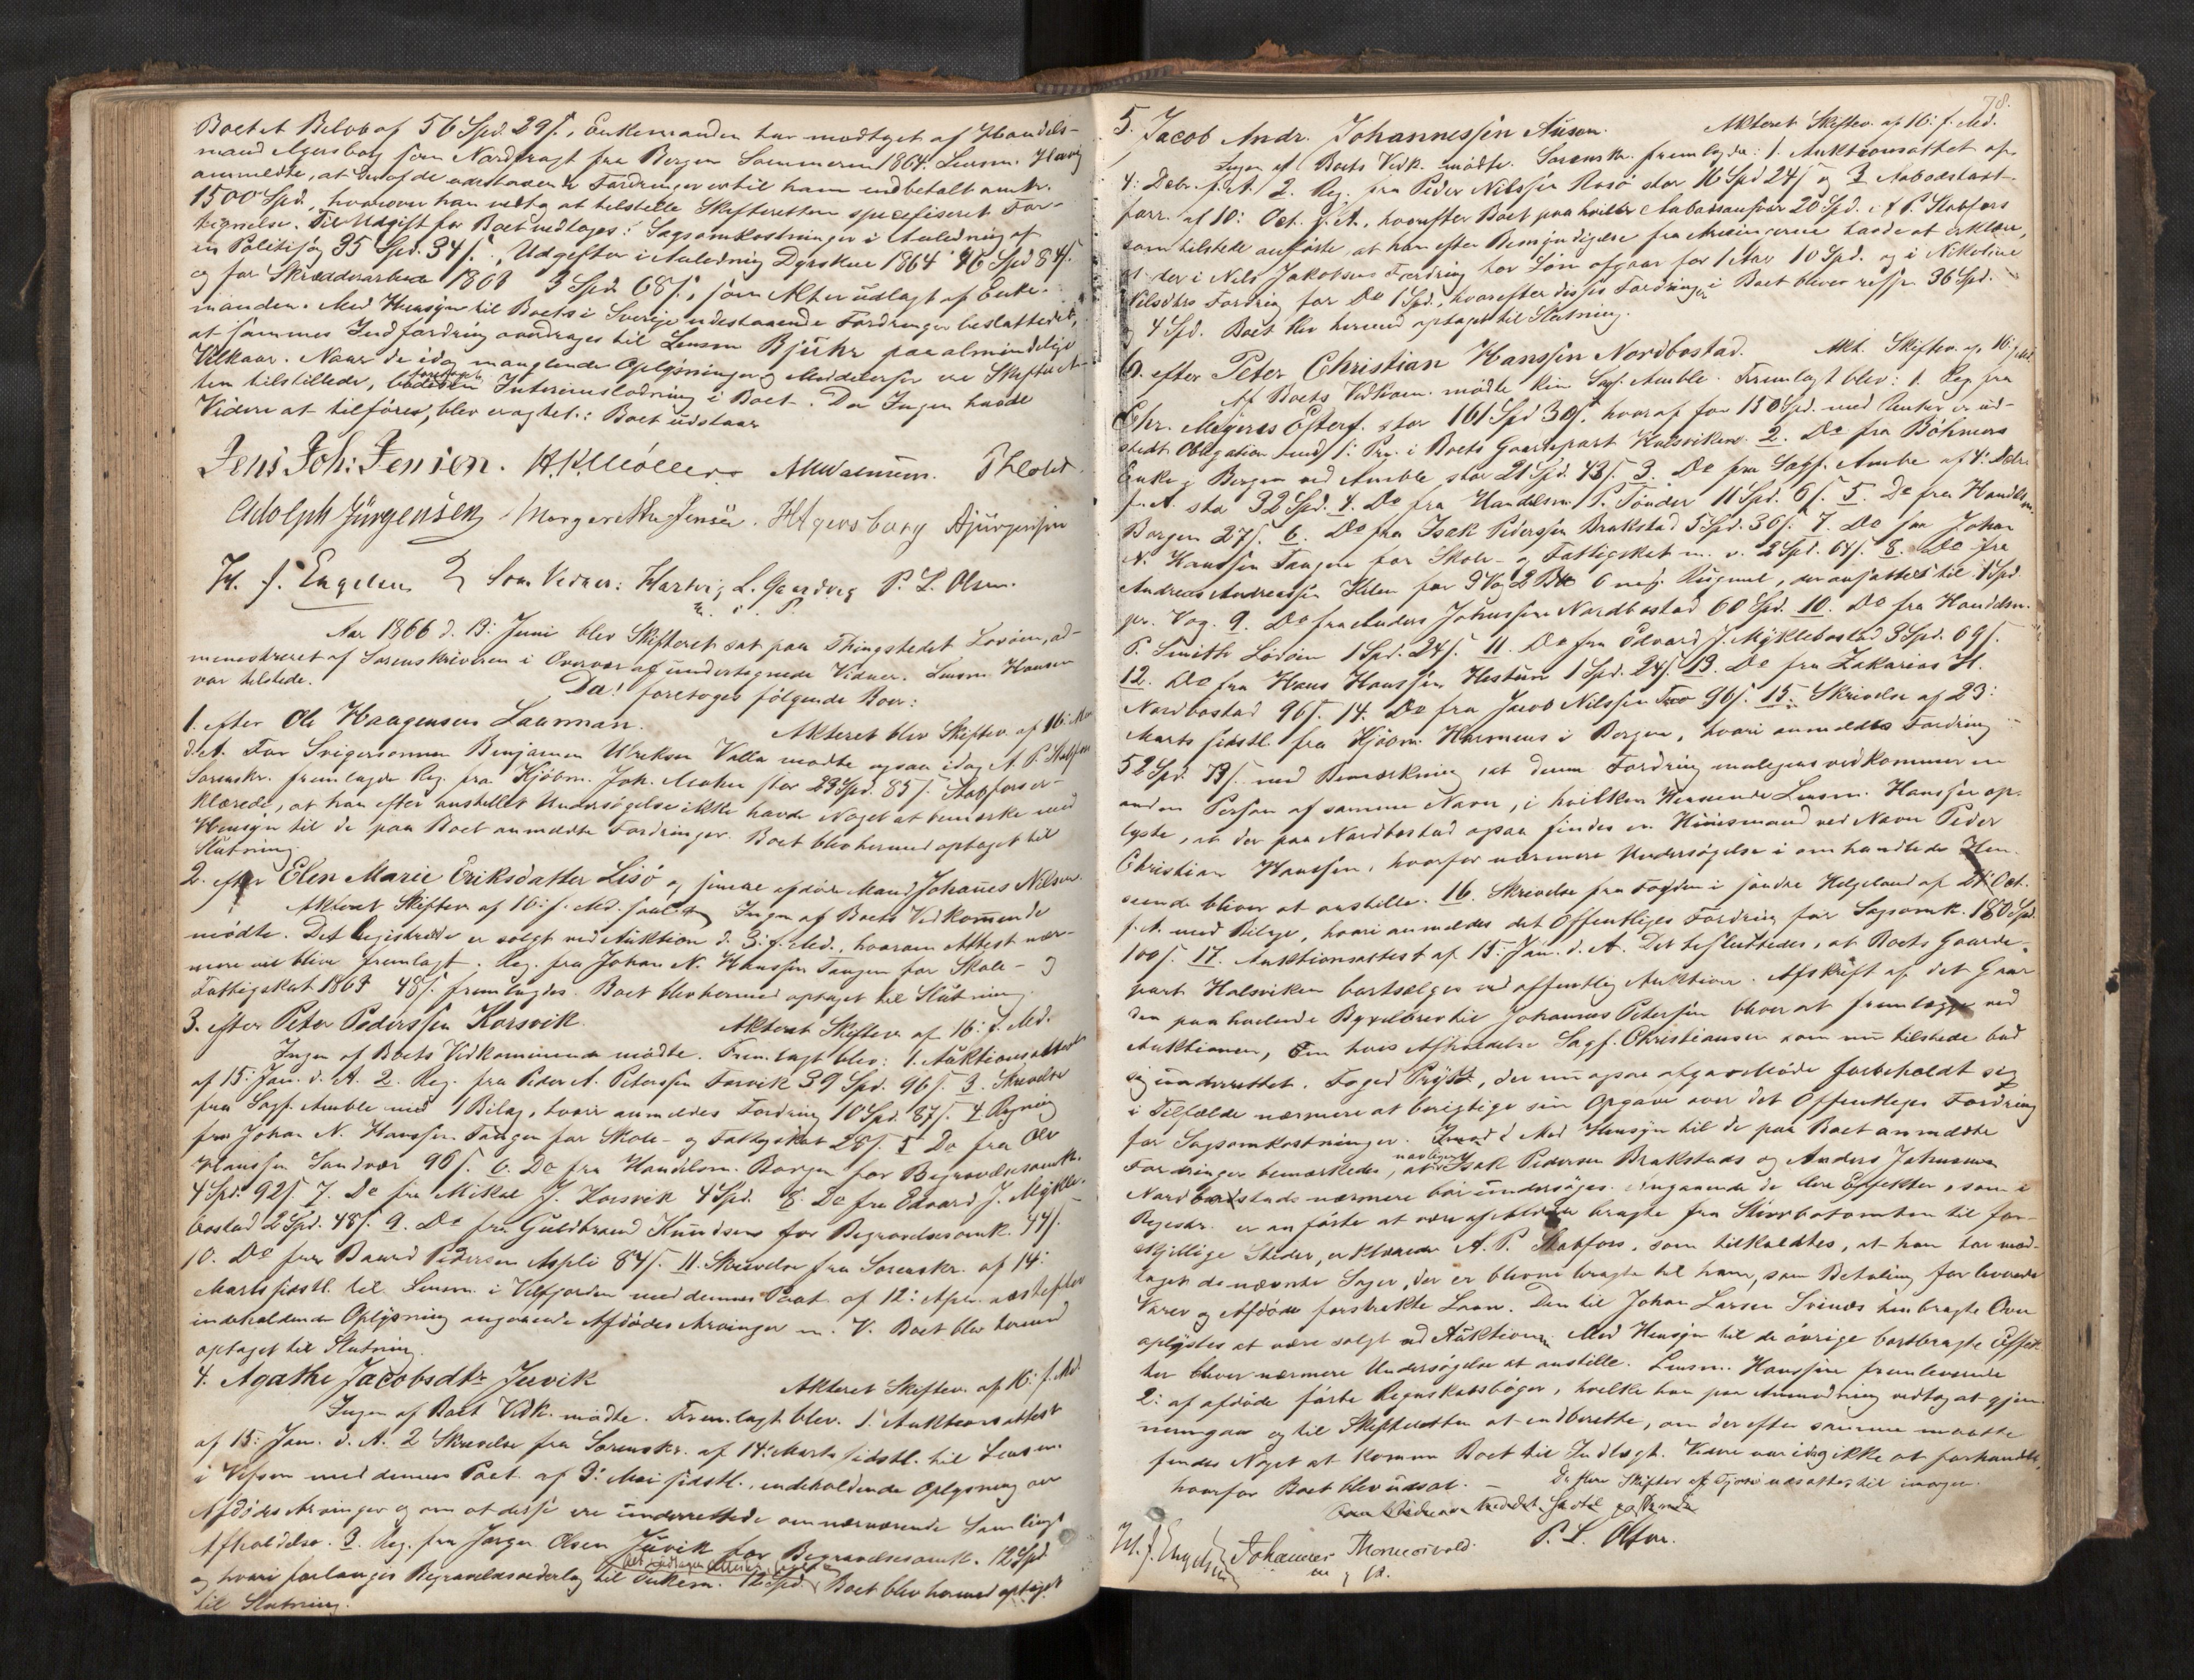 Boetet Beløb af 56 Spd. 29 s., Enkemanden har modtaget af Handels-
mand Agersborg som Nordfragt fra Bergen Sommeren 1864. Lensm. Havig
anmeldte, at der af de udestaaende Fordringer er til ham indbetalt omtr.
1500 Spd, hvorover han vedtog at tilstille Skifteretten specifiseret For-
tegnelse. Til Udgift for Boet vedtoges: Sagsomkostninger i Anledning af
en Politisag 35 Spd. 34 s., Udgifter i Anledning Dyrskue 1864 26 Spd 84 s.
og for Skrædderarbeide 1863 3 Spd. 68 s., som Alt er udlagt af Enke-
manden. Med Hensyn til Boets i Sverige udestaaende Fordringer besluttedes,
at sammes Indfordring overdrages til Lensm Bjuhr paa almindelige
Vilkaar. Naar de idag manglende Oplysninger og Meddelelser ere Skifteret-
ten tilstillede, foretages Interimslodning i Boet. Da Ingen havde
Videre at tilføre, blev eragtet: Boet udstaar
Jens Joh: Jensen. H.K. Møller
Adolph Jürgensen Margrethe Jensen. H Agersborg AJürgensen
W. J. Engelsen Som Vidner: Hartvig L. Gaardveg P. L. Olsen.
Aar 1866 d. 13: Juni blev Skifteret sat paa Thingstedet Lovøen, ad-
ministreret af Sorenskriveren i Overvær af undertegnede Vidner. Lensm. Hansen
var tilstede. Da! foretoges følgende Boer:
1. efter Ole Haagensen Laaman. Akteret blev Skiftev. af 16: Mai
d. A. For Svigersønnen Benjamin Ulriksen Valla mødte ogsaa idag A. P. Stabfors
Sorenskr. fremlagde Reg. fra Kjøbm. Joh. Mohn stor 23 Spd. 85 s. Stabfors er-
klærede, at han efter anstillet Undersøgelse ikke havde Noget at bemærke med
Hensyn til de paa Boet anmeldte Fordringer. Boet blev hermed optaget til
Slutning.
2. efter Elen Marie Eriksdatter Lisø og hendes afdøde Mand Johanes Nilsen
Akteret Skiftev af 16: f. Md. Ingen af Boets Vedkommende
mødte. Det Registrerede er solgt ved Auktion d. 3: f. Md., hvorom Attest nær-
mere vil blive fremlagt. Reg. fra Johan N. Hanssen Tangen for Skole- og
Fattigskat 1863 48 s. fremlagdes. Boet blev hermed optaget til Slutning
3. efter Peter Pederssen Korsvik. Akteret Skiftev. af 16: f. Md.
Ingen af Boets Vedkommende mødte. Fremlagt blev: 1. Auktionsattest
af 15: Jan. d. A. 2. Reg. fra Peder A. Peterssen Forvik 39 Spd. 96 s. 3. Skrivelse
fra Sagf. Amble med 1 Bilag, hvori anmeldes Fordring 10 Spd. 87 s. 4. Regning
fra Johan N. Hanssen Tangen for Skole- og Fattigskat 28 s. 5. Do fra Ole
Hanssen Sandvær 96 s. 6. Do fra Handelsm. Borgen for Begravelsesomk.
4 Spd. 92 s. 7. Do fra Mikal J. Korsvik 4 Spd. 8. Do fra Edvard J. Mykle-
bostad 2 Spd. 48 s. 9. Do fra Guldbrand Knudsen for Begravelsesomk. 44 s.
10. Do fra Baard Pedersen Aspli 84 s. 11. Skrivelse fra Sorenskr. af 14:
Marts sidstl. til Lensm. i Velfjorden med dennes Paat. af 12: April næstefter
indeholdende Oplysning angaaende Afdødes Arvinger m. V. Boet blev hermed
optaget til Slutning.
4. Agathe Jacobsdtr Juvik Akteret Skiftev. af 16: f. Md.
Ingen af Boets Vedk. mødte. Fremlagt blev. 1. Auktionsattest
af 15: Jan. d. A. 2 Skrivelse fra Sorenskr. af 14: Marts sidstl. til Lensm.
i Vefsen med dennes Paat. af 3: Mai sidstl., indeholdende Oplysning om
Afdødes Arvinger og om at disse ere underrettede om nærværende Samlings
Afholdelse. 3. Reg. fra Jørgen Olsen Juvik for Begravelsesomk. 12 Spd
og hvori forlanges Begravelsesvederlag til Enkem. 12 Spd. Boet blev hermed optaget
til Slutning.
78.
5. Jacob Andr. Johannessen Ausen. Akteret Skiftev. af 16: f. Md.
Ingen af Boets Vedk. mødte. Sorenskr. fremlagde: 1. Auktionsattest af
4: Debr. f. A. 2. Reg. fra Peder Nilssen Rosø stor 16 Spd 24 s og 3 Aabodstaxt-
forr. af 10: Oct. f. A., hvorefter Boet paahviler Aabodsansvar 20 Spd. A. P. Stabfors
som tilstede anførte at han efter Bemyndigelse fra Arvingerne havde at erklære,
at der i Nils Jakobsens Fordring for Løn afgaar for 1 Aar 10 Spd. og i Nikoline
Nilsdtrs Fordring for Do 1 Spd., hvorefter disses Fordringer i Boet bliver resp. 36 Spd.
og 4 Spd. Boet blev hermed optaget til Slutning.
6. efter Peter Christian Hanssen Nordbostad. Akt. Skiftev. af 16: f. Md.
Af Boets Vedkom. mødte kun Sagf. Amble. Fremlagt blev: 1. Reg fra
Chr. Meyeres Efterf. stor 161 Spd 30 s. hvoraf for 150 Spd. med Renter er ud-
stedt Obligation med 1: Pr. i Boets Gaardepart Halsviken. 2. Do fra Böhmers
Enke i Bergen ved Amble stor 21 Spd. 43 s. 3. Do fra Sagf. Amble af 4: Debr.
f. A. stor 32 Spd. 4. Do fra Handelsm. P. Tønder 11 Spd. 6 s. 5. Do fra Handelsm.
Borgen 27 s. 6. Do fra Isak Pederssen Brakstad 5 Spd. 36 s. 7. Do fra Johan
N. Hanssen Tangen for Skole- og Fattigskat m. v. 2 Spd. 64 s. 8. Do fra
Andreas Andreassen Holen for 3 Vog 2 Bb 6 mrk. Rugmel, der ansættes til 1 Spd
pr. Vog. 9. Do fra Anders Johnssen Nordbostad 60 Spd. 10. Do fra Handelsm.
P. Smith Lovøen 1 Spd. 24 s. 11. Do fra Edvard J. Myklebostad 3 Spd. 69 s.
12. Do fra Hans Hanssen Hestun 1 Spd. 24 s. 13. Do fra Zakarias H.
Nordbostad 96 s. 14. Do fra Jacob Nilssen Tro 96 s. 15. Skrivelse af 23:
Marts sidstl. fra Kjøbm. Harmens i Bergen, hvori anmeldtes Fordring
52 Spd. 13 s. med Bemærkning, at denne Fordring muligens vedkommer en
anden Person af samme Navn, i hvilken Henseende Lensm. Hanssen op-
lyste, at der paa Nordbostad ogsaa findes en Huusmand ved Navn Peder
Christian Hanssen, hvorfor nærmere Undersøgelse i omhandlede Hen-
seende bliver at anstille. 16. Skrivelse fra Fogden i søndre Helgeland af 21 Oct.
f. A. med Bilage, hvori anmeldes det Offentliges Fordring for Sagsomk. 180 Spd.
100 s. 17. Auktionsattest af 15: Jan. d. A. Det besluttedes, at Boets Gaarde-
part Halsviken bortsælges ved offentlig Auktion. Afskrift af det Gaar-
den paaheftede Bygselbrev til Johannes Petersen bliver at fremlægge ved
Auktionen, om hvis Afholdelse Sagf. Christiansen som nu tilstede bad
sig underrettet. Foged Prytz, der nu ogsaa afgav Møde forbeholdt sig
i Tilfælde nærmere at berigtige sin Opgave over det Offentliges Fordring
for Sagsomkostninger. Med Hensyn til de paa Boet anmeldte
Fordringer bemærkedes, at navnligen Isak Pedersen Brakstads og Anders Johnssen
Nordbostads nærmere bør undersøges. Angaaende de flere Effekter, som i
Regestr. er anførte at være af Afdøde bragte fra Skirvbotomten til for-
skjellige Steder, erklærede A. P. Stabfors, som tilkaldtes, at han har mod-
taget de nævnte Sager, der er blevne bragte til ham, som Betaling for leverede
Varer og Afdøde forstrakte Laan. Den til Johan Larsen Svinæs henbragte Ovn
oplystes at være solgt ved Auktionen. Med Hensyn til de øvrige bortbragte Effek-
ter bliver nærmere Undersøgelse at anstille. Lensm. Hanssen fremleverede
2: af afdøde førte Regnskabsbøger, hvilke han paa Anmodning vedtog at gjen-
nemgaa og til Skifteretten at indberette, om der efter samme maatte
findes Noget at komme Boet til Indtægt. Videre var idag ikke at forhandle,
hvorfor Boet blev udsat. De flere Skifter af Tjøtø udsattes til imorgen.
W. J. Engelsen Johannes P. L. Olsen.